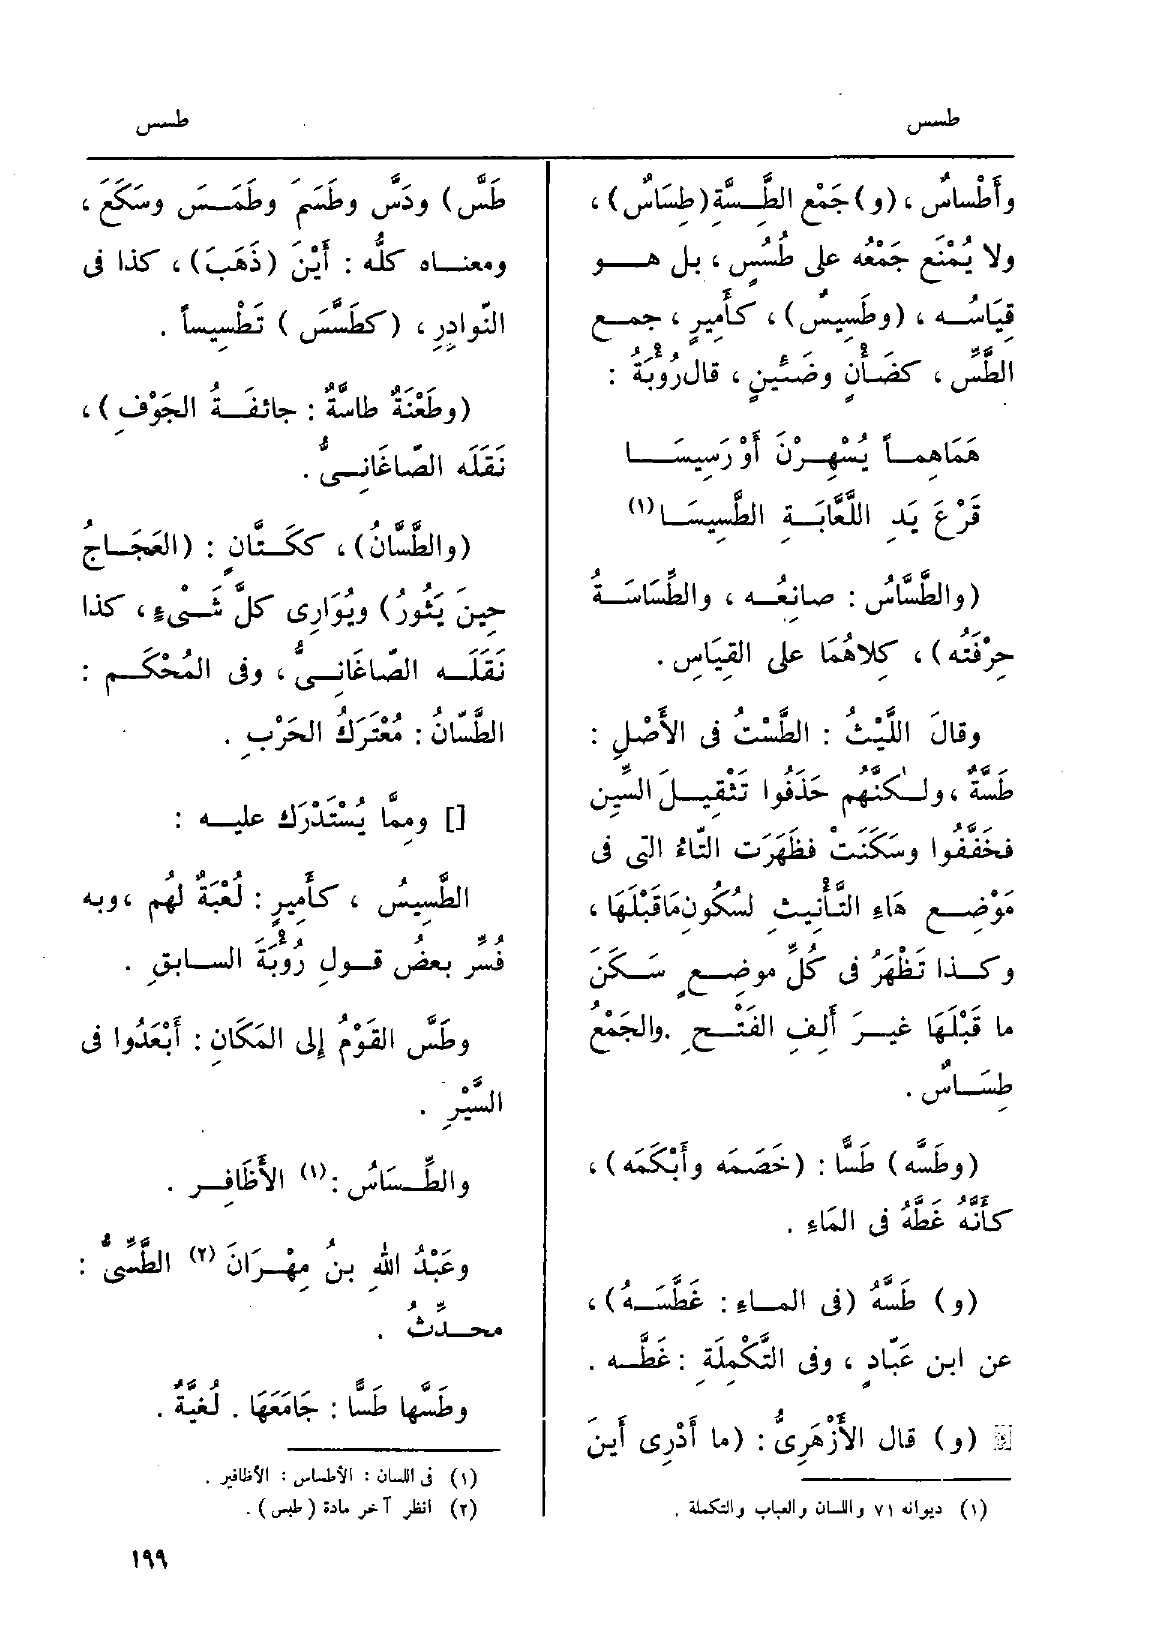 طسس
طسس
وأَطْساسٌ ، (و) جَمْع الطِّسَّةِ (طِسَاسٌ) ،
ولا يُمْنَع جَمْعُه على طُسُسٍ ، بل هو
قِيَاسُه ، (وطَسِيسٌ) ، كأَمِيرٍ ، جمع
الطَّسِّ ، كضَأْنٍ وضَئِينٍ ، قال رُؤْبَةُ :
هَمَاهِماً يُسْهِرْنَ أَوْ رَسِيسَا
قَرْعَ يَدِ اللَّعَّابَةِ الطَّسِيسَا (١)
(والطَّسَّاسُ : صانِعُه ، والطِّسَاسَةُ
حِرْفَتُه) ، كِلاهُمَا على القِيَاسِ .
وقالَ اللَّيْثُ : الطَّسْتُ فى الأَصْلِ :
طَسَّةٌ ، ولٰكنَّهُم حَذَفُوا تَثْقِيلَ السِّين
فخَفَّفُوا وسَكَنَتْ فظَهَرَت التّاءُ التى فى
مَوْضِع هَاءِ التَّأْنِيثِ لسُكُونِ مَا قَبْلَهَا ،
وكذا تَظْهَرُ فى كُلِّ موضِعٍ سَكَنَ
ما قَبْلَهَا غيرَ أَلِفِ الفَتْحِ . والجَمْعُ
طِسَاسٌ .
(وطَسَّه) طَسًّا : (خَصَمَه وأَبْكَمَه) ،
كأَنَّهُ غَطَّهُ فى المَاءِ .
(و) طَسَّهُ (فى الماءِ : غَطَّسَهُ) ،
عن ابن عَبّادٍ ، وفى التَّكْمِلَةِ : غَطَّه .
(و) قال الأَزْهَرِىُّ : (ما أَدْرِى أَينَ
(١) ديوانه ٧١ واللسان والعباب والتكملة .
طَسَّ) ودَسَّ وطَسَمَ وطَمَسَ وسَكَعَ ،
ومعناه كلُّه : أَيْنَ (ذَهَبَ) ، كذا فى
النّوادِرِ ، (كطَسَّسَ) تَطْسِيساً .
(وطَعْنَةٌ طاسَّةٌ : جائفَةُ الجَوْفِ) ،
نَقَلَه الصّاغَانِىُّ .
(والطَّسَّانُ) ، ككَتَّانٍ : (العَجَاجُ
حِينَ يَثُورُ) ويُوَارِى كلَّ شَىْءٍ ، كذا
نَقَلَه الصّاغَانِىُّ ، وفى المُحْكَمِ :
الطَّسّانُ : مُعْتَرَكُ الحَرْبِ .
[] وممَّا يُسْتَدْرَك عليه :
الطَّسِيسُ ، كأَمِيرٍ : لُعْبَةٌ لهُم ، وبه
فُسِّر بعضُ قولِ رُؤْبَةَ السابقِ .
وطَسَّ القَوْمُ إلى المَكَانِ : أَبْعَدُوا فى
السَّيْرِ .
والطِّسَاسُ : (١) الأَظَافِر .
وعَبْدُ اللهِ بنُ مِهْرَانَ (٢) الطَّسِّىُّ :
محدِّثٌ .
وطَسَّها طَسًّا : جَامَعَهَا . لُغَيَّةٌ .
(١) فى اللسان : الأطساس : الأظافير .
(٢) انظر آخر مادة (طبس) .
١٩٩